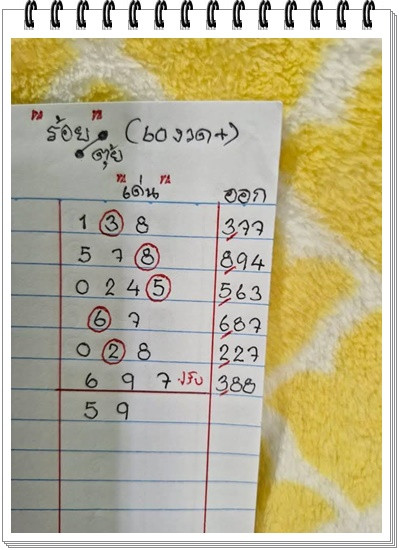 ร้อย (๖๐งวด+)
ตุ้ย
เด่น ออก
1 3 8 377
5 7 8 894
0 2 4 5 563
6 7 687
0 2 8 227
6 9 7 ปรับ 388
5 9